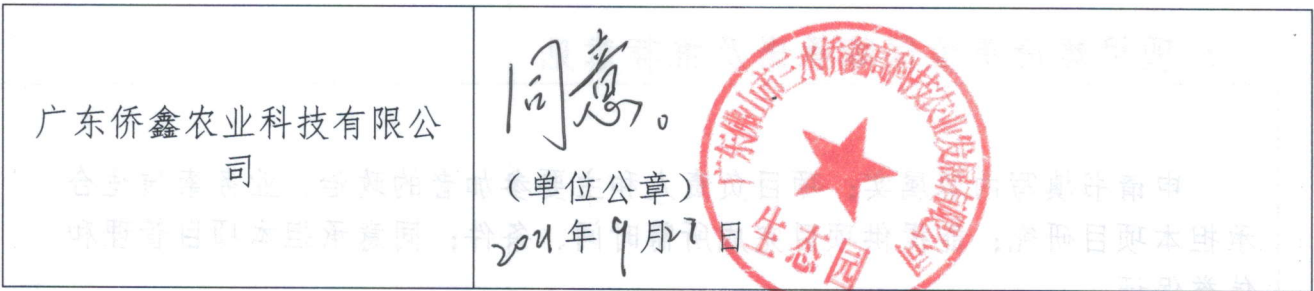 广东侨鑫农业科技有限公
司
同意。
(单位公章)
2021年9月7日
广东佛山市三水侨鑫高科技农业发展有限公司
生态园